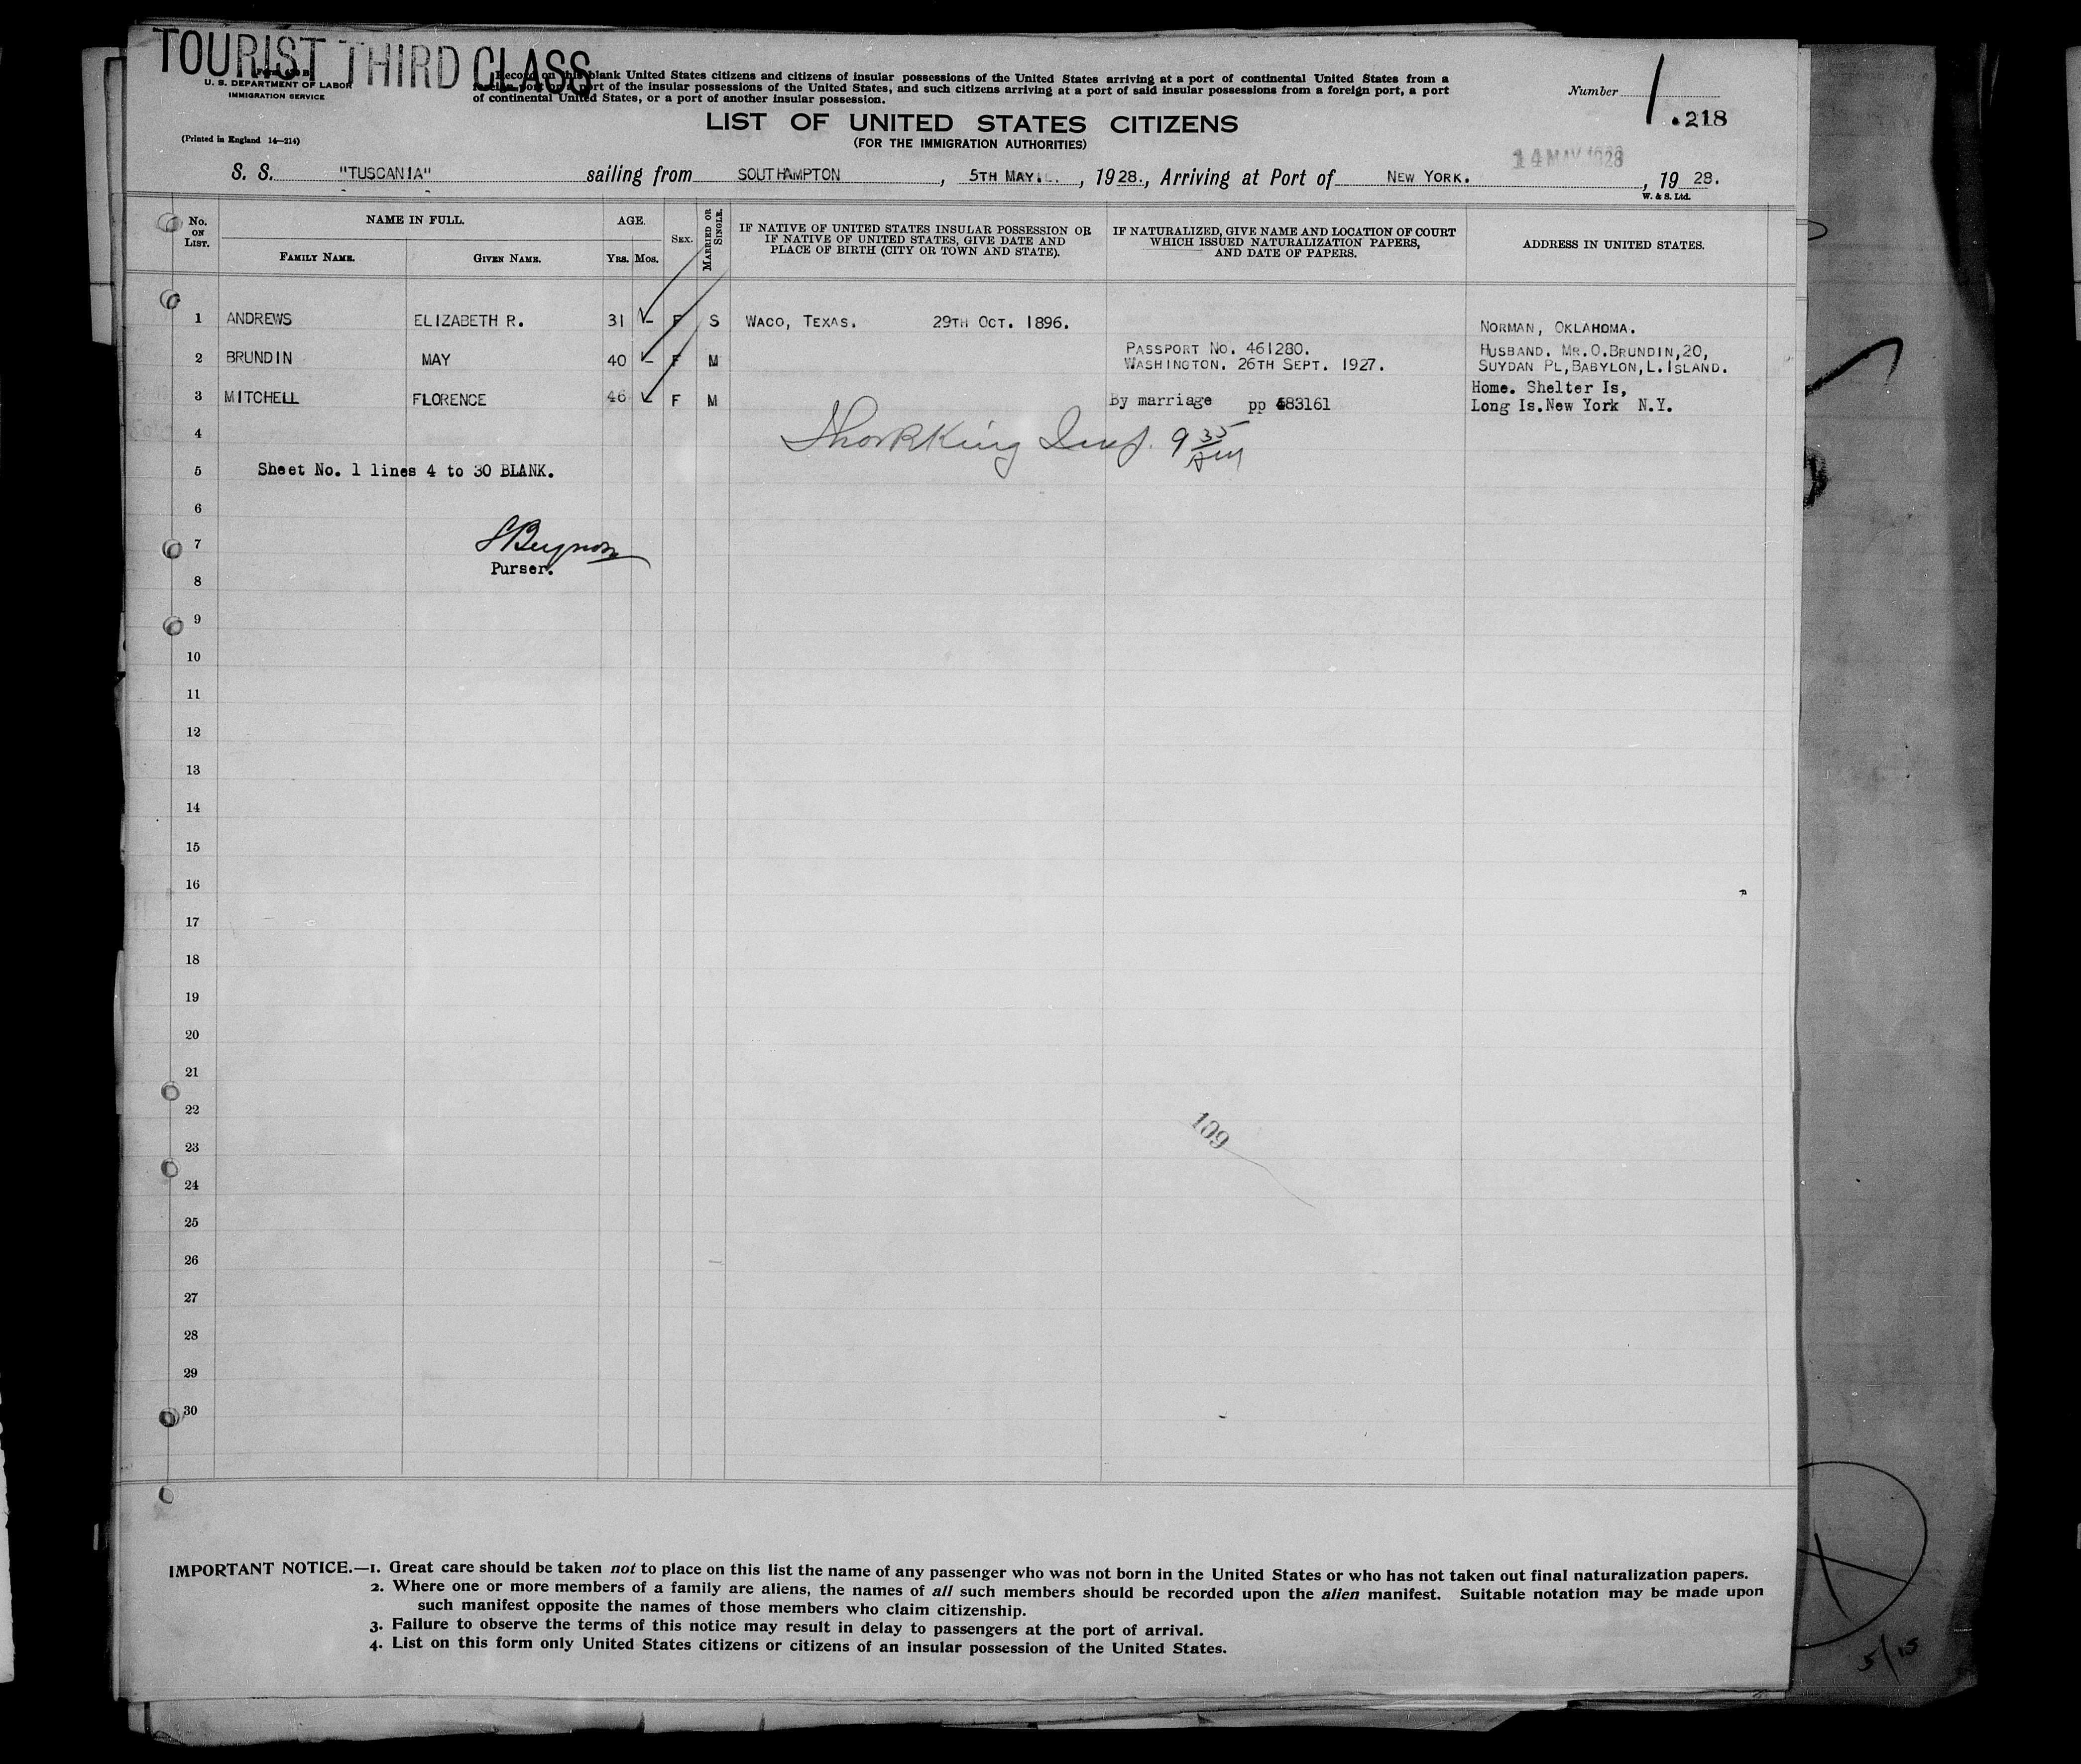 TOURIST THIRD CLASS
U. S. DEPARTMENT OF LABOR
IMMIGRATION SERVICE
(Printed in England 14—214)
Record on this blank United States citizens and citizens of insular possessions of the United States arriving at a port of continental United States from a
foreign port or a port of the insular possessions of the United States, and such citizens arriving at a port of said insular possessions from a foreign port, a port
of continental United States, or a port of another insular possession.
Number 1
.218
LIST OF UNITED STATES CITIZENS
(FOR THE IMMIGRATION AUTHORITIES)
14 MAY 1928
S. S. "TUSCANIA" sailing from SOUTHAMPTON, 5TH MAY., 1928., Arriving at Port of NEW YORK., 19 28.
W. & S. Ltd.
No. ON LIST. NAME IN FULL. AGE. SEX. MARRIED OR SINGLE. IF NATIVE OF UNITED STATES INSULAR POSSESSION OR IF NATIVE OF UNITED STATES, GIVE DATE AND PLACE OF BIRTH (CITY OR TOWN AND STATE). IF NATURALIZED, GIVE NAME AND LOCATION OF COURT WHICH ISSUED NATURALIZATION PAPERS, AND DATE OF PAPERS. ADDRESS IN UNITED STATES.
FAMILY NAME. GIVEN NAME. YRS. MOS.
1 ANDREWS ELIZABETH R. 31 - F S WACO, TEXAS. 29TH OCT. 1896. NORMAN, OKLAHOMA.
2 BRUNDIN MAY 40 - F M PASSPORT NO. 461280. WASHINGTON. 26TH SEPT. 1927. HUSBAND. MR.O.BRUNDIN,20, SUYDAN PL,BABYLON,L.ISLAND.
3 MITCHELL FLORENCE 46 F M By marriage pp 483161 Home. Shelter Is, Long Is.New York N.Y.
4
5 Sheet No. 1 lines 4 to 30 BLANK.
6
7
Purser.
8
9
10
11
12
13
14
15
16
17
18
19
20
21
22
109
23
24
25
26
27
28
29
30
IMPORTANT NOTICE.—1. Great care should be taken not to place on this list the name of any passenger who was not born in the United States or who has not taken out final naturalization papers.
2. Where one or more members of a family are aliens, the names of all such members should be recorded upon the alien manifest. Suitable notation may be made upon
such manifest opposite the names of those members who claim citizenship.
3. Failure to observe the terms of this notice may result in delay to passengers at the port of arrival.
4. List on this form only United States citizens or citizens of an insular possession of the United States.
5/15